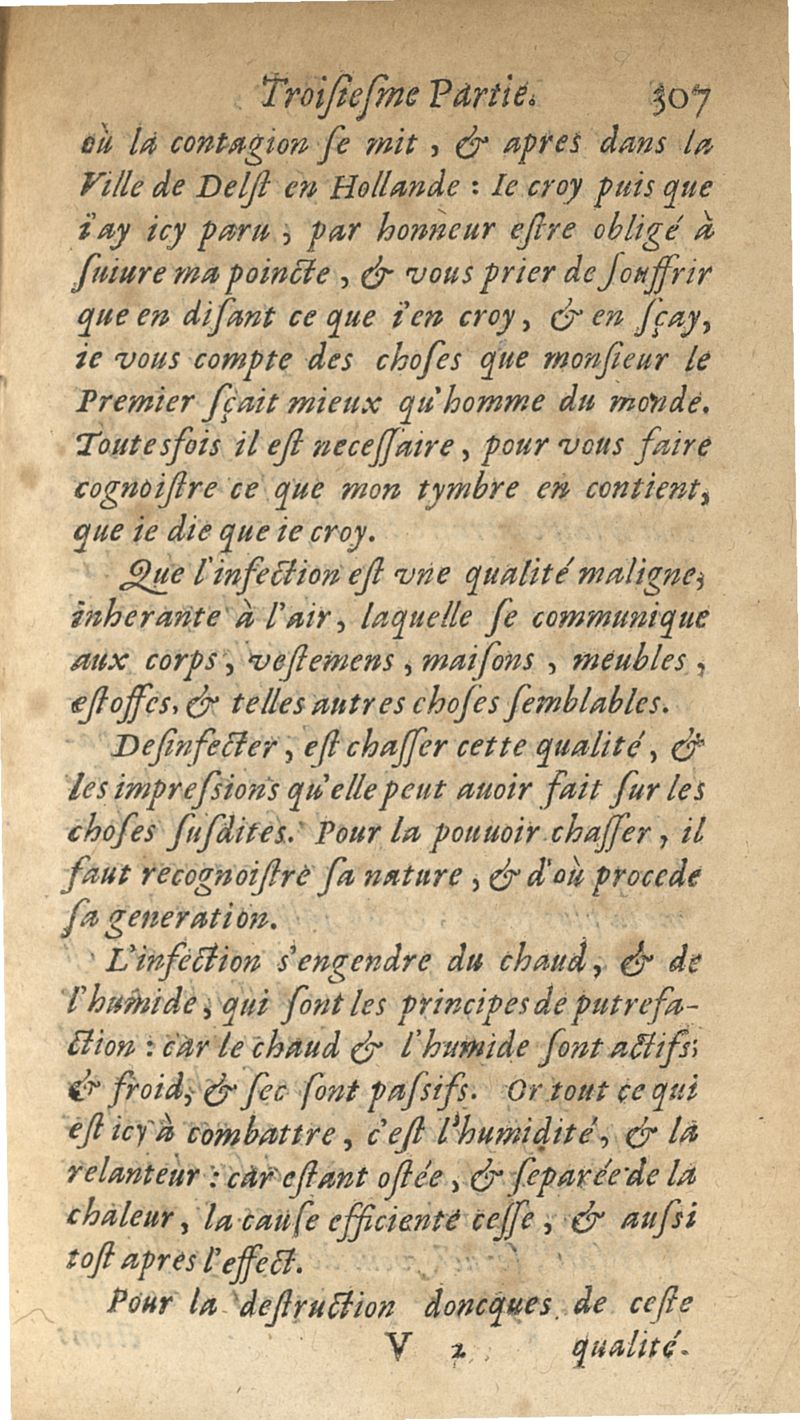 Troiſieſme Partie. 307
où la contagion ſe mit, & apres dans la
Ville de Delſt en Hollande : Ie croy puis que
i'ay icy paru, par honneur eſtre obligé à
ſuiure ma poincte, & vous prier de ſouffrir
que en diſant ce que i'en croy, & en ſçay,
ie vous compte des choſes que monſieur le
Premier ſçait mieux qu'homme du monde.
Toutesfois il eſt neceſſaire, pour vous faire
cognoiſtre ce que mon tymbre en contient,
que ie die que ie croy.
Que l'infection eſt vne qualité maligne,
inherante à l'air, laquelle ſe communique
aux corps, veſtemens, maiſons, meubles,
eſtoffes, & telles autres choſes ſemblables.
Deſinfecter, eſt chaſſer cette qualité, &
les impreſsions qu'elle peut auoir fait ſur les
choſes ſuſdites. Pour la pouuoir chaſſer, il
faut recognoiſtre ſa nature, & d'où procede
ſa generation.
L'infection s'engendre du chaud, & de
l'humide, qui ſont les principes de putrefa-
ction : car le chaud & l'humide ſont actifs,
& froid, & ſec ſont paſsifs. Or tout ce qui
eſt icy à combattre, c'eſt l'humidité, & la
relanteur : car eſtant oſtée, & ſeparée de la
chaleur, la cauſe efficiente ceſſe, & auſsi
toſt apres l'effect.
Pour la deſtruction doncques de ceſte
V 2 qualité.